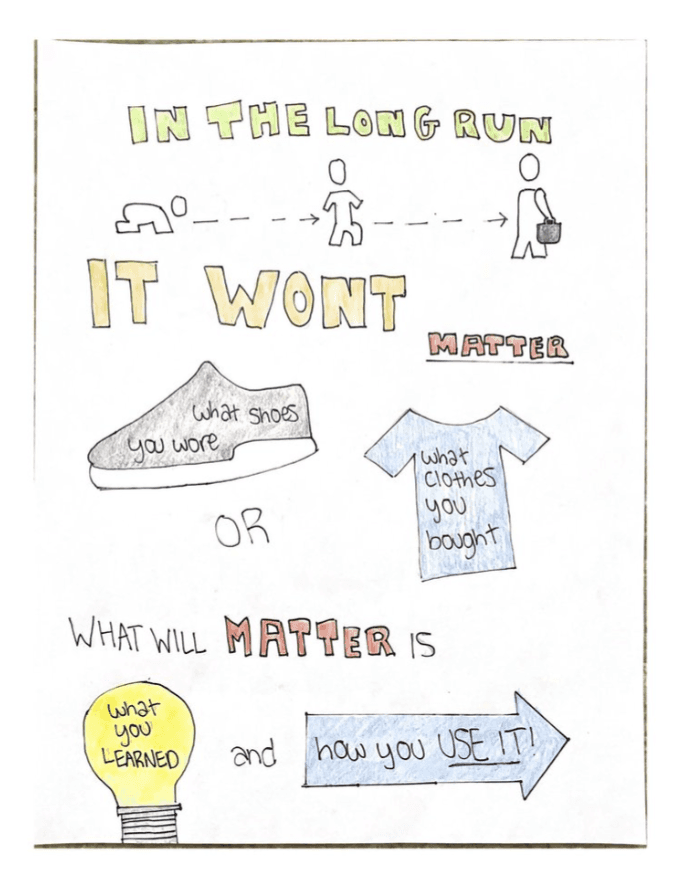 IN THE LONG RUN
IT WONT
MATTER
what shoes
you wore
OR
what
clothes
you
bought
WHAT WILL MATTER IS
what
you
LEARNED
and
how you USE IT!